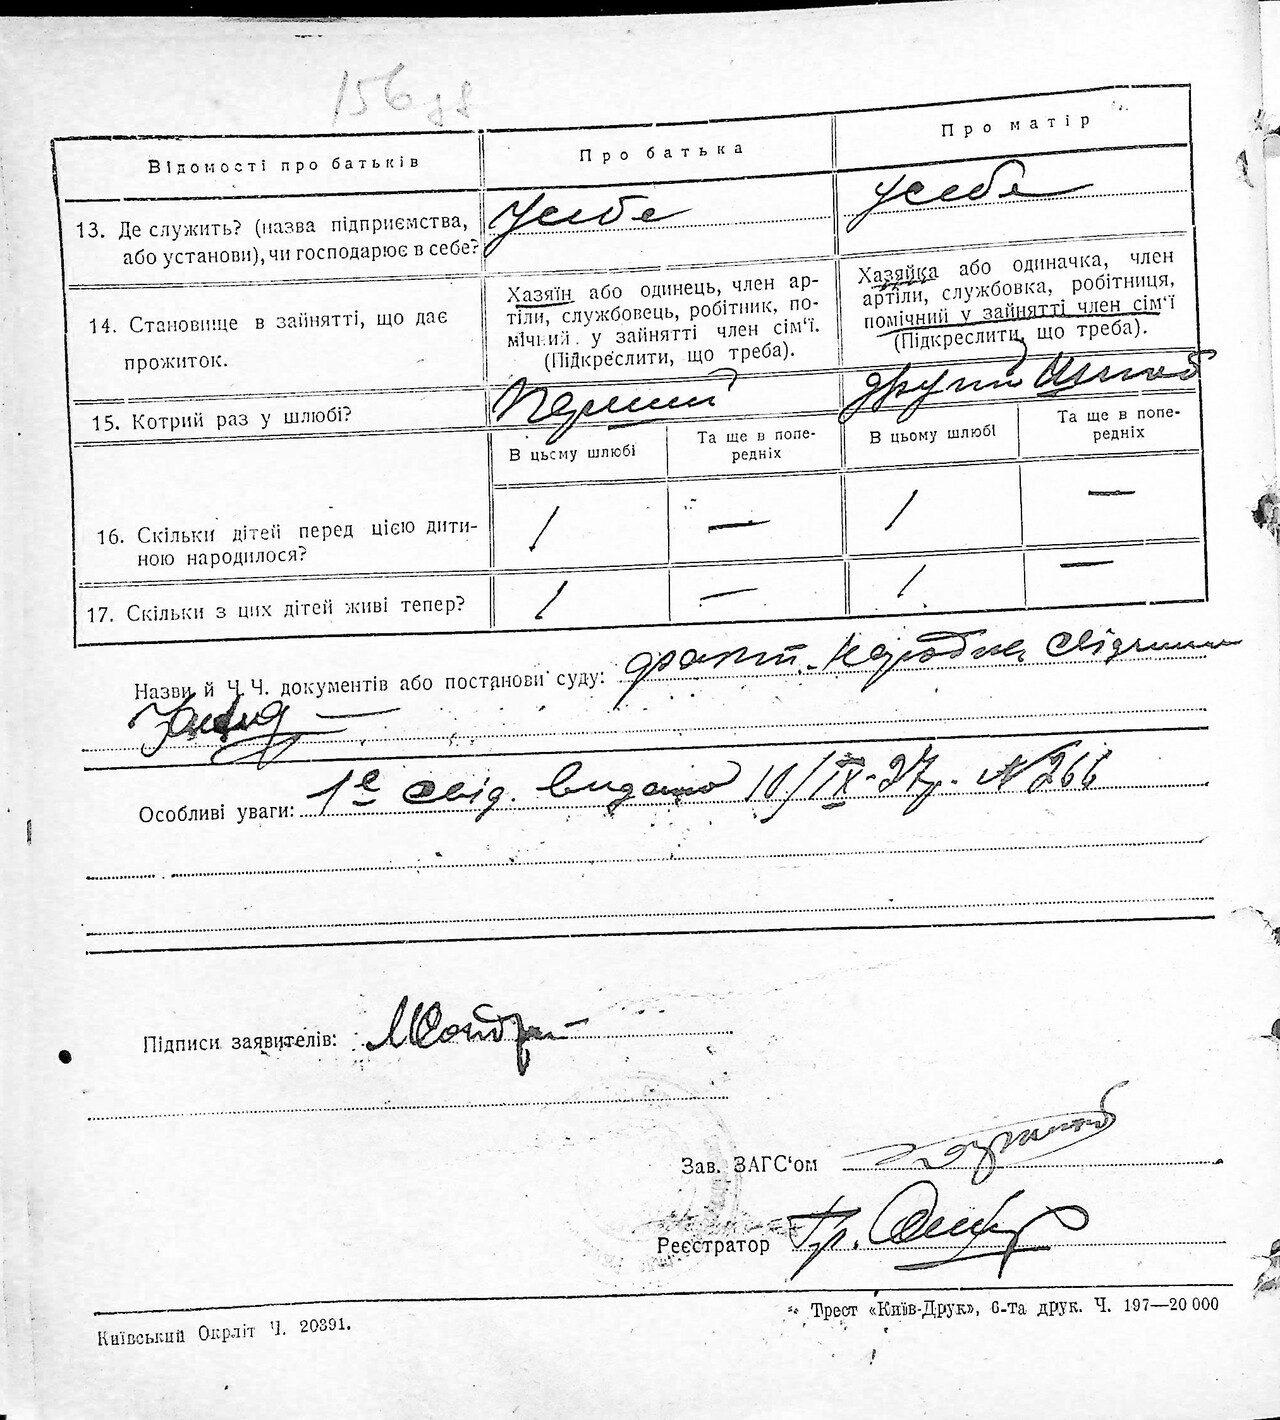 156
Відомості про батьків
Про батька
Про матір
13. Де служить? (назва підприємства,
або установи), чи господарює в себе?
У себе
У себе
14. Становище в зайнятті, що дає
прожиток.
Хазяїн або одинець, член ар-
тіли, службовець, робітник, по-
мічний у зайнятті член сім'ї.
(Підкреслити, що треба).
Хазяйка або одиначка, член
артіли, службовка, робітниця,
помічний у зайнятті член сім'ї
(Підкреслити, що треба).
15. Котрий раз у шлюбі?
Перший
другий
В цьому шлюбі
Та ще в попе-
редніх
В цьому шлюбі
Та ще в попе-
редніх
16. Скільки дітей перед цією дити-
ною народилося?
1 — 1 —
17. Скільки з цих дітей живі тепер?
1 — 1 —
Назви й Ч.Ч. документів або постанови суду:
Особливі уваги: 1е свід. видано 10/IX-27р. N 266
Підписи заявителів:
Зав. ЗАГС'ом
Реєстратор
Київський Окрліт Ч. 20391.
Трест «Київ-Друк», 6-та друк. Ч. 197—20 000